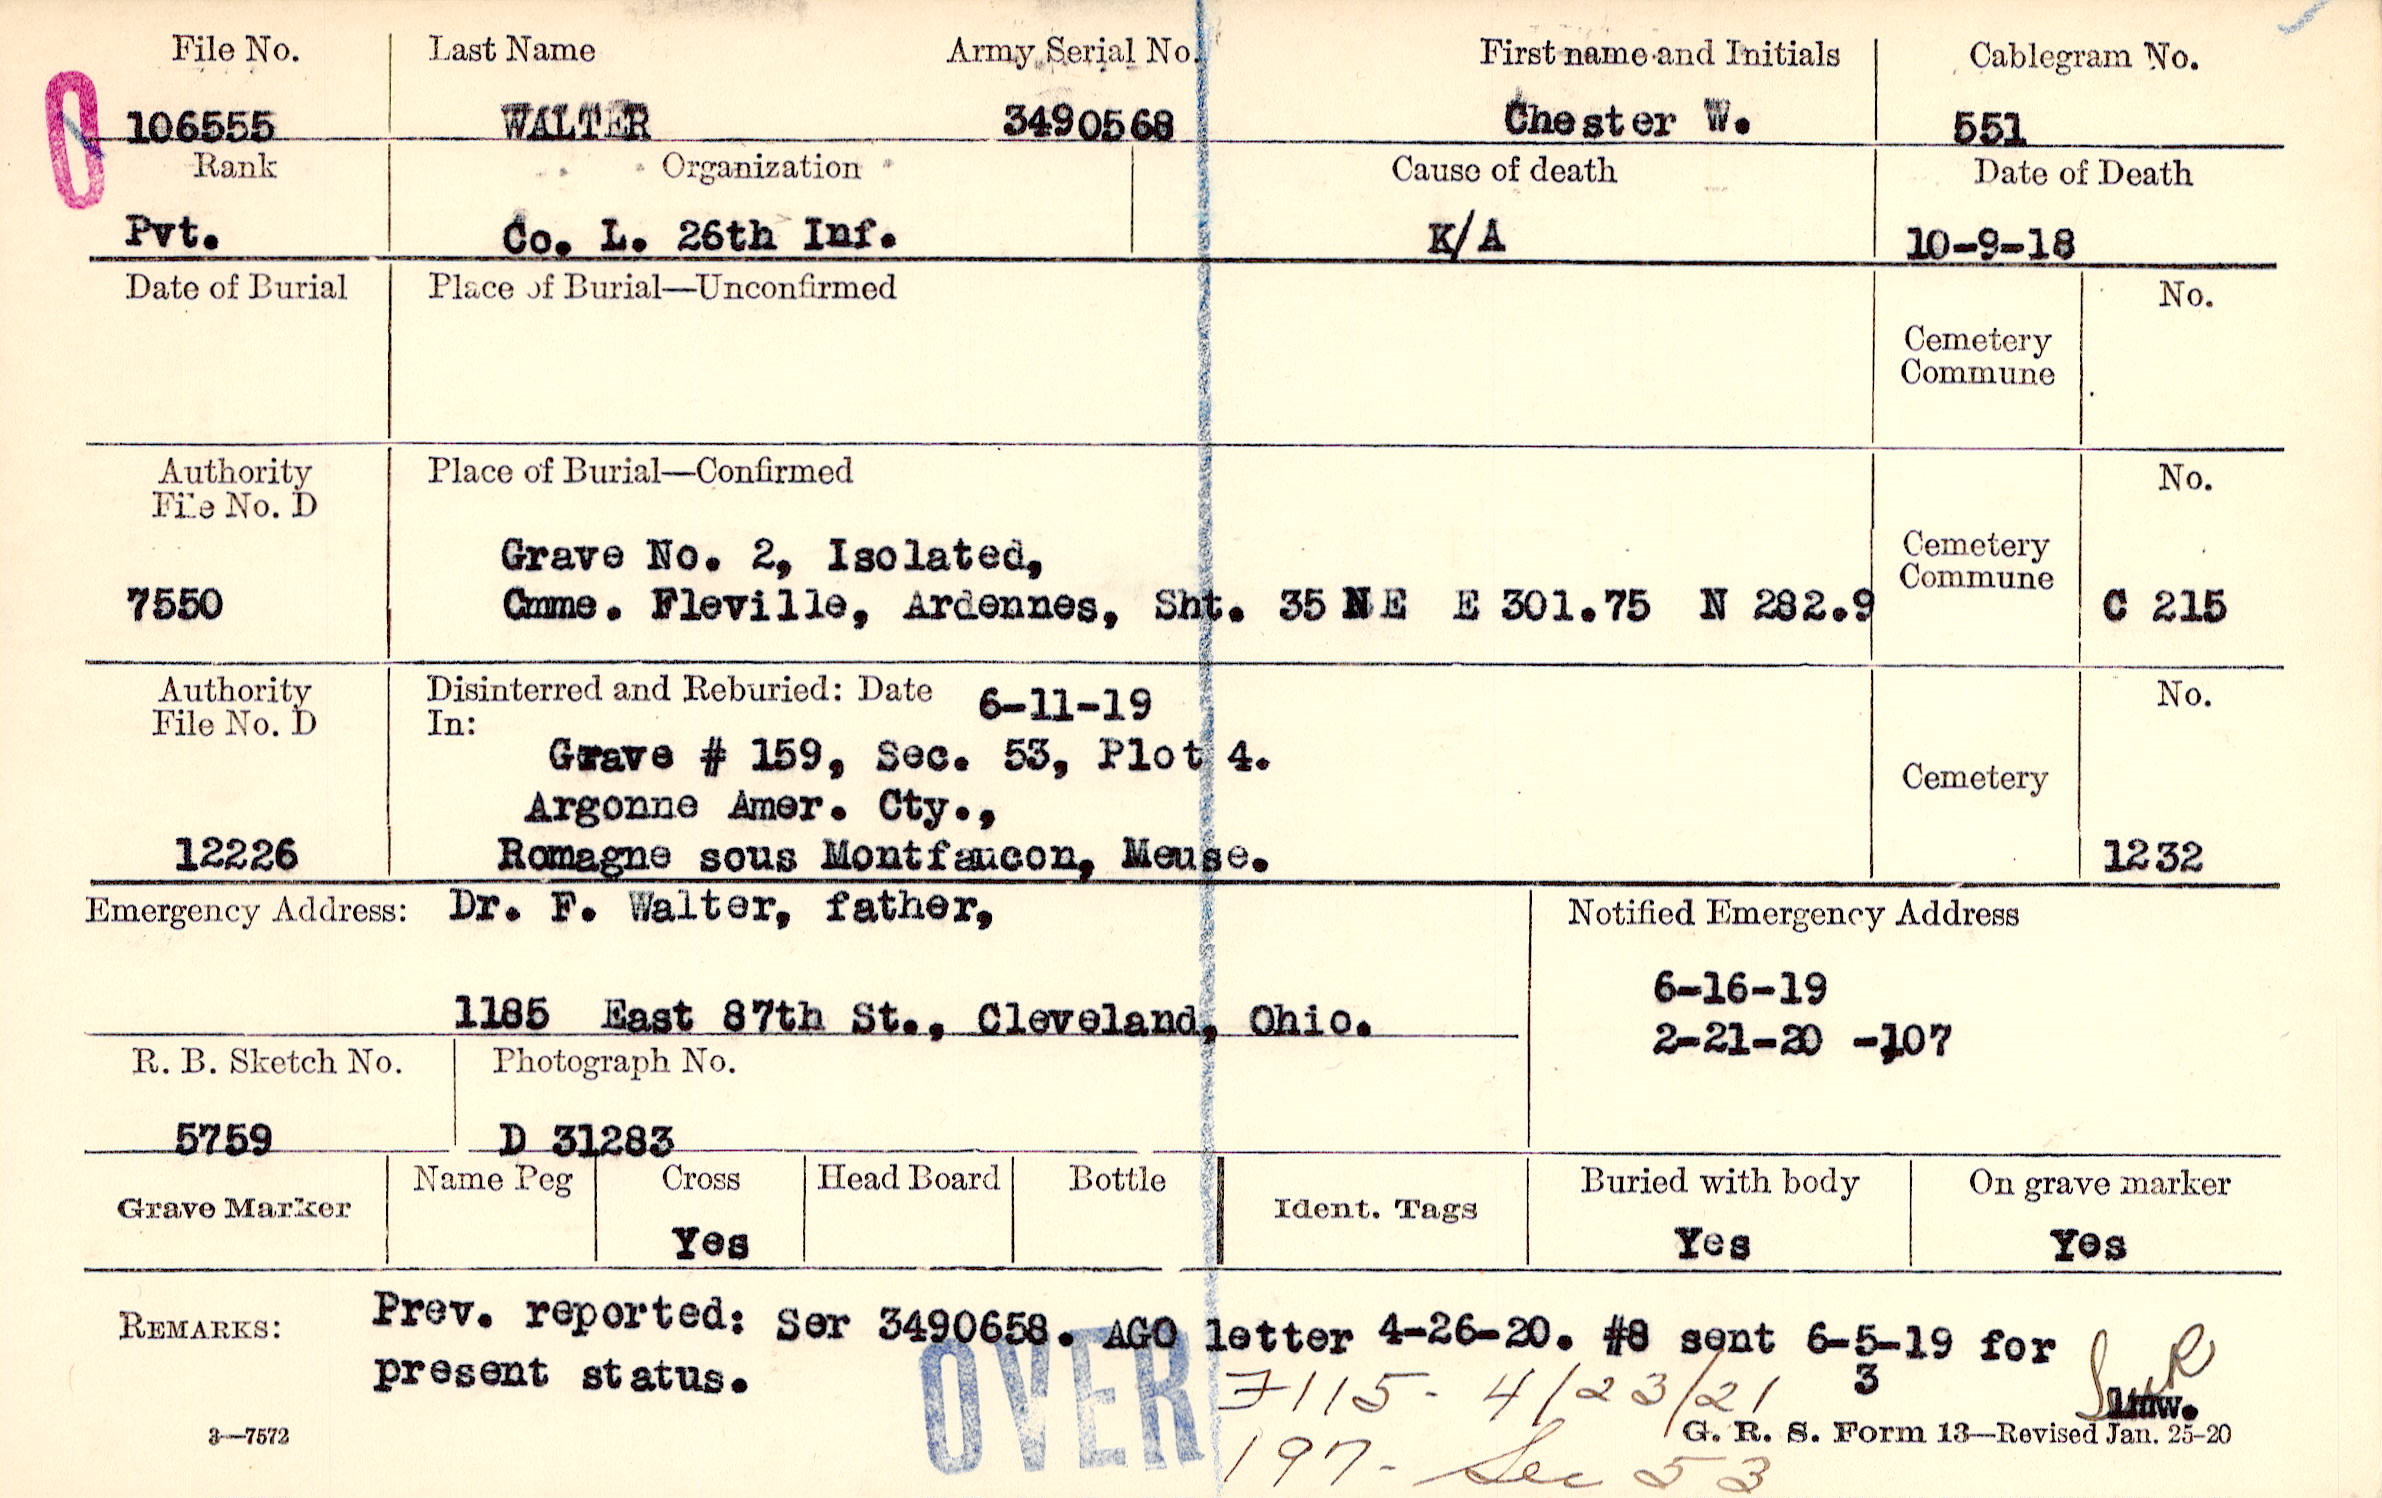 File No. Last Name Army Serial No. First name and Initials Cablegram No.
106555 WALTER 3490568 Chester W. 551
Rank Organization Cause of death Date of Death
Pvt. Co. L. 26th Inf. K/A 10-9-18
Date of Burial Place of Burial—Unconfirmed No.
Cemetery
Commune
Authority Place of Burial—Confirmed No.
File No. D
Grave No. 2, Isolated, Cemetery
Commune
7550 Cmme. Fleville, Ardennes, Sht. 35 NE E 301.75 N 282.9 C 215
Authority Disinterred and Reburied: Date 6-11-19 No.
File No. D In:
Grave # 159, Sec. 53, Plot 4.
Cemetery
Argonne Amer. Cty.,
12226 Romagne sous Montfaucon, Meuse. 1232
Emergency Address: Dr. F. Walter, father, Notified Emergency Address
6-16-19
1185 East 87th St., Cleveland, Ohio.
2-21-20 -107
R. B. Sketch No. Photograph No.
5759 D 31283
Grave Marker Name Peg Cross Head Board Bottle Ident. Tags Buried with body On grave marker
Yes Yes Yes
REMARKS: Prev. reported: Ser 3490658. AGO letter 4-26-20. #8 sent 6-5-19 for
present status. 3
OVER
7115- 4/23/21
3—7572 G. R. S. Form 13—Revised Jan. 25-20
197- Sec 53